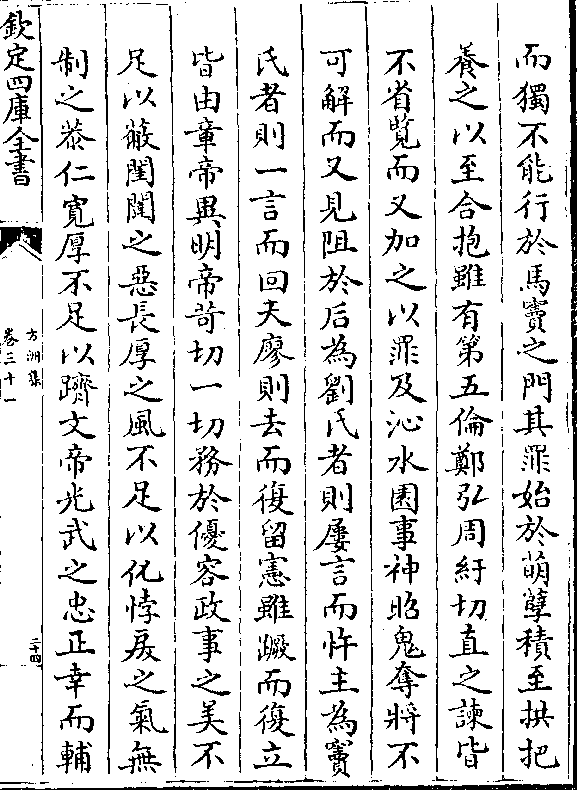 而獨不能行於馬竇之門其罪始於萌孽積至拱把
養之以至合抱雖有第五倫鄭弘周紆切直之諫皆
不省覽而又加之以罪及沁水園事神昭鬼奪將不
可解而又見阻於后為劉氏者則屢言而忤主為竇
氏者則一言而回天廖則去而復留憲雖蹶而復立
皆由章帝異明帝苛切一切務於優容政事之美不
足以蔽閨閫之惡長厚之風不足以化悖戾之氣無
制之㳟仁寛厚不足以躋文帝光武之忠正幸而輔
欽定四庫全書
方洲集
卷三十一
二十四